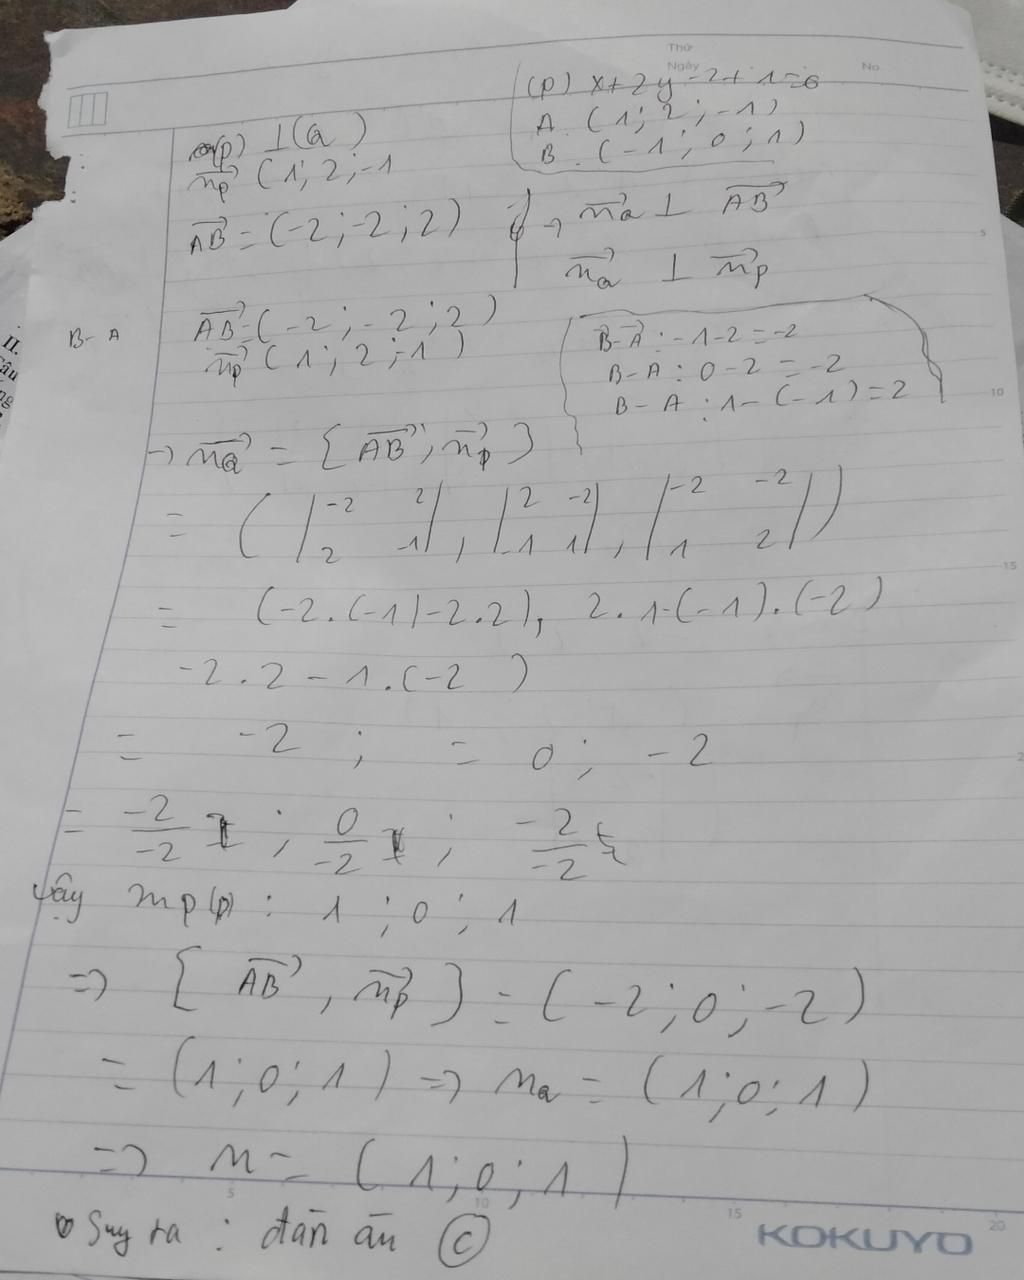 Thứ
Ngày
No.
(P) x+2y-2+1=0
A. (1; 2; -1)
B. (-1; 0; 1)
(p) ⊥(a)
n⃗p (1; 2; -1
AB⃗ = (-2; -2; 2)
→ n⃗a ⊥ AB⃗
n⃗a ⊥ n⃗p
B-A
AB⃗=(-2; -2; 2)
n⃗p (1; 2; -1)
B-A : -1-2=-2
B-A : 0-2=-2
B-A : 1-(-1)=2
→ n⃗a = [AB⃗, n⃗p]
= ( |-2 2|, |2 -2|, |-2 -2| )
2 -1 -1 1 1 2
= (-2.(-1)-2.2), 2.1-(-1).(-2)
-2.2-1.(-2 )
= -2 ; = 0; -2
= -2/-2 ; 0/-2 ; -2/-2
Vậy mp(p) : 1 ; 0 ; 1
=> [AB⃗, n⃗p] = (-2; 0; -2)
= (1; 0; 1) => na = (1; 0; 1)
=> n = (1; 0; 1)
Suy ra : đán án C
II.
Câu
ng
5
10
15
5
10
15
20
KOKUYO